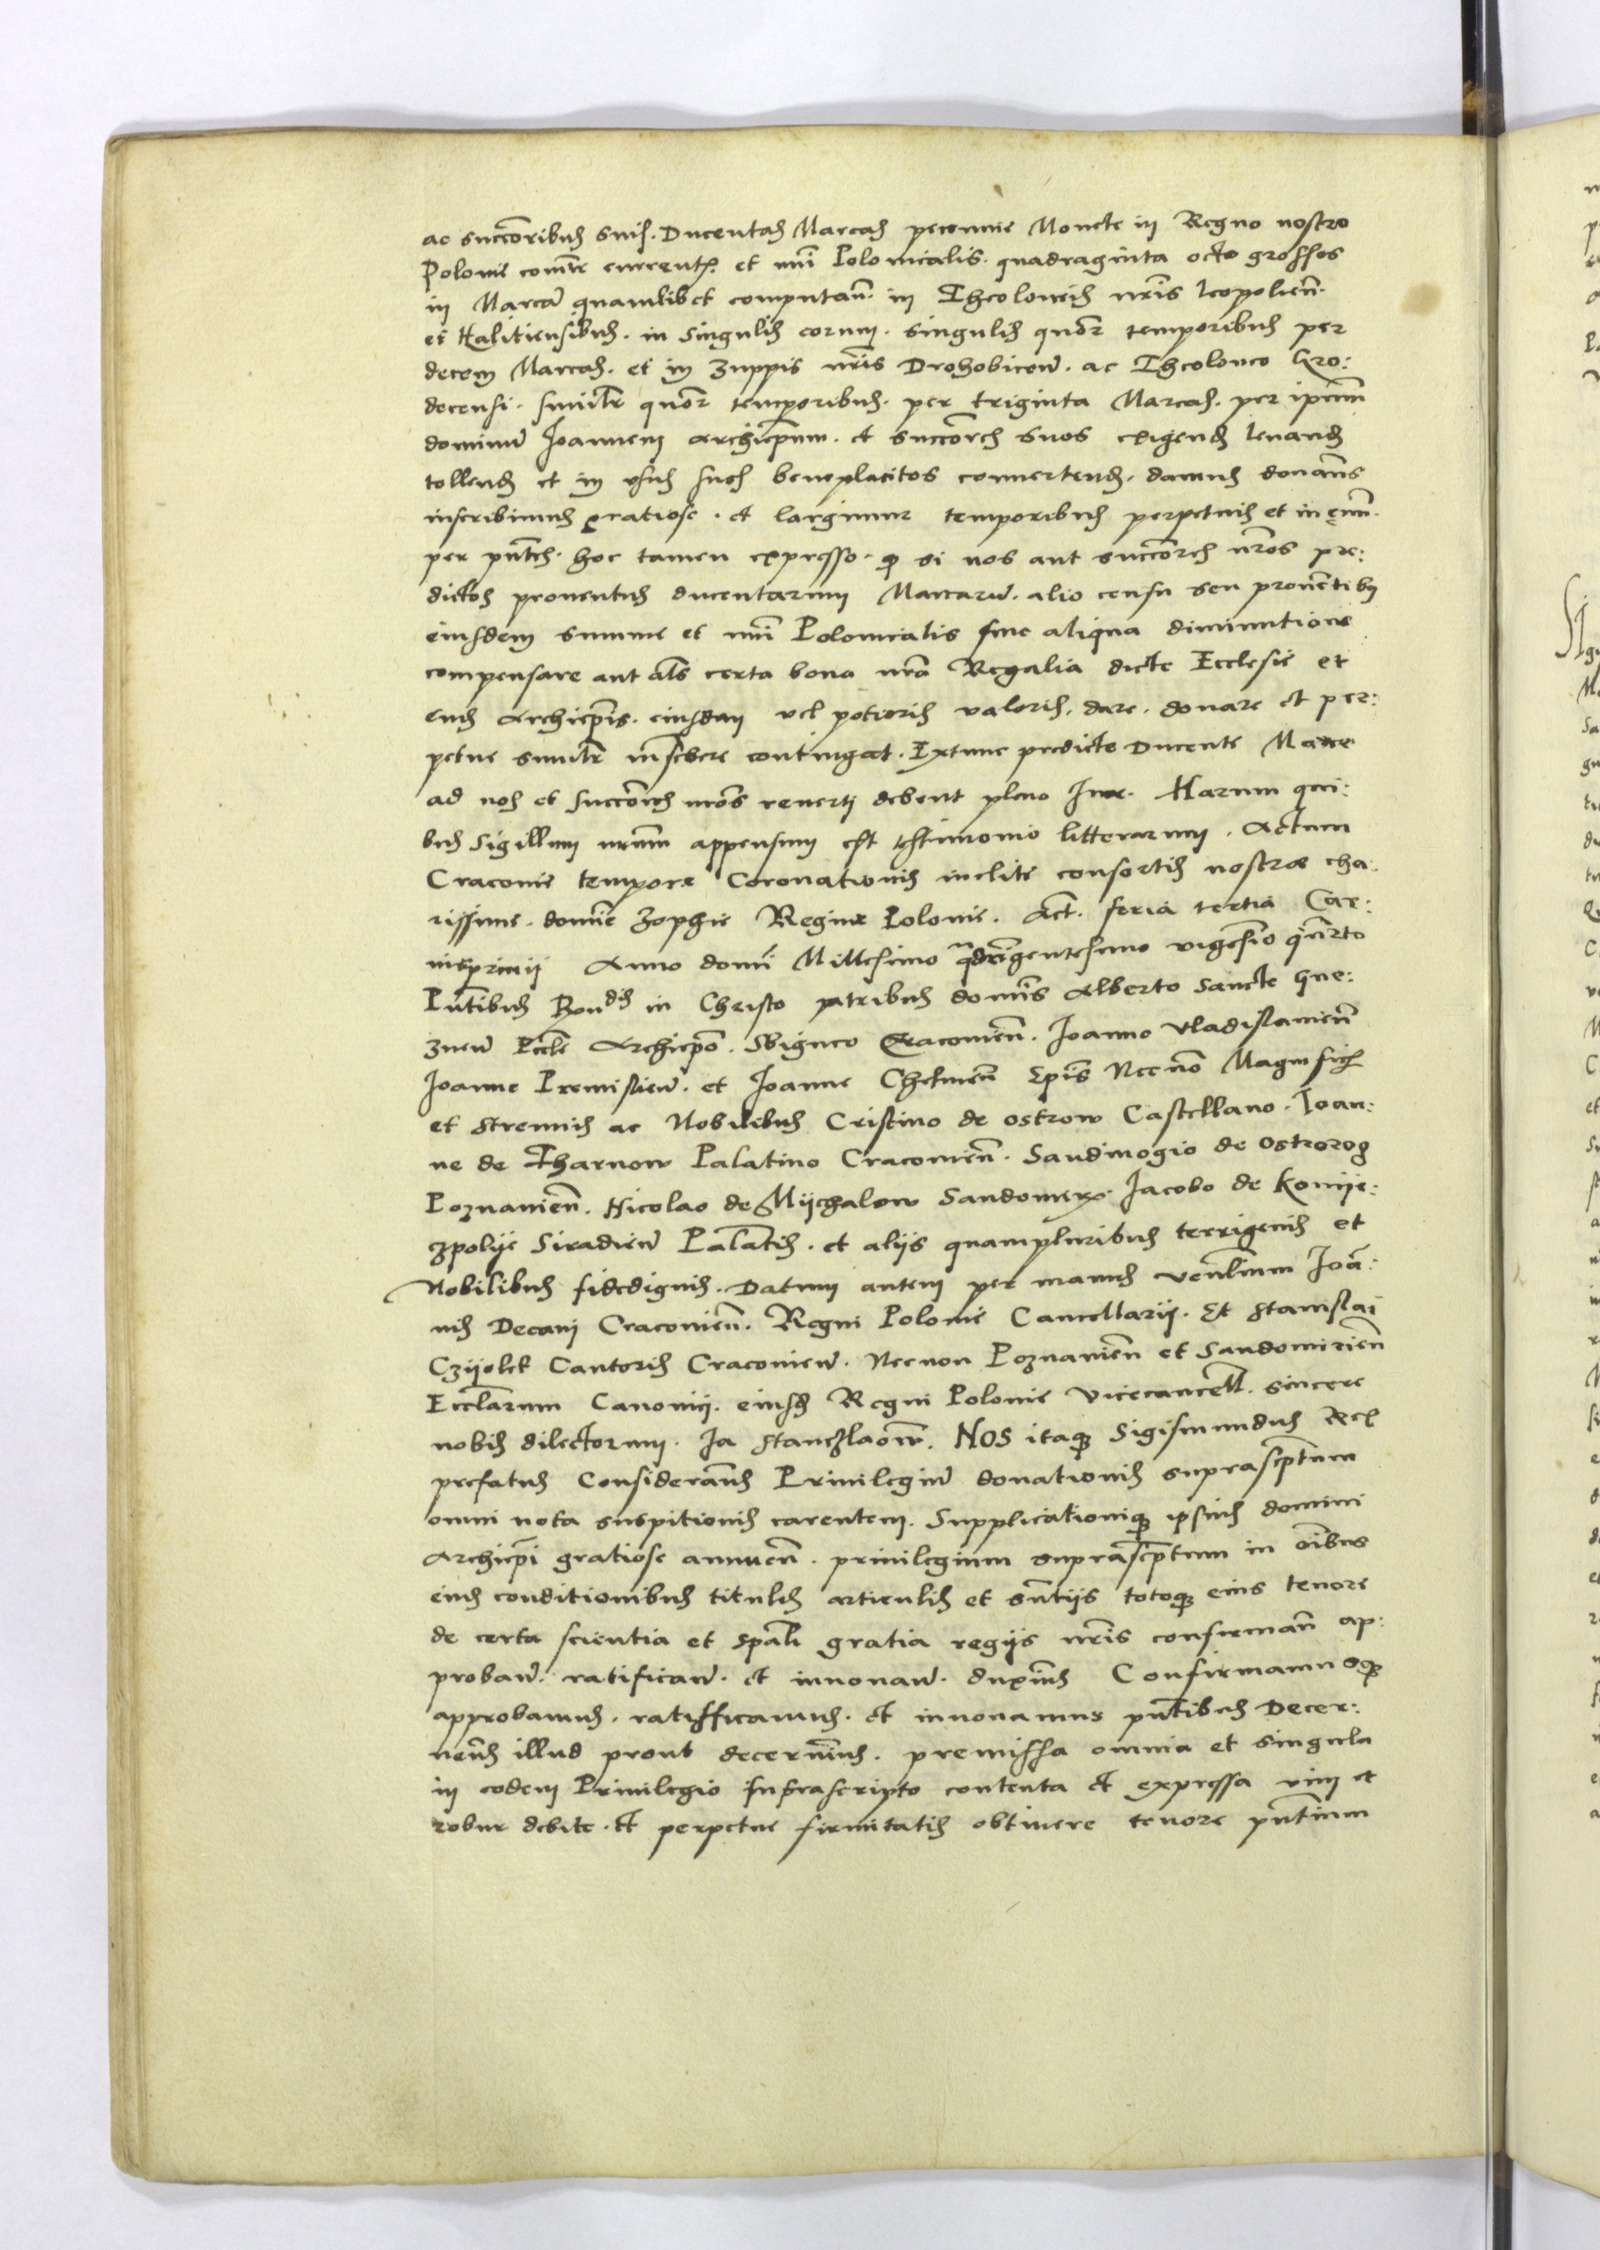 ac succoribus suis. Ducentas Marcas peccunie Monete in Regno nostro
Polonie comtr currentis et nui Polonicalis. quadraginta octo grossos
in Marcam quamlibet computan. in Theloneis nris leopolien.
et Haliciensibus. in singulis eorum. singulis quor temporibus per
decem Marcas. et in Zuppis nris Drohobicen. ac Theloneo Gro:
decensi. similr quor temporibus. per triginta Marcas. per ipsum
dominum Joannem archiepum. et succores suos exigendas levandas
tollendas et in usus suos beneplacitos convertendas. damus donamus
inscribimus gratiose. et largimur temporibus perpetuis et in evum.
per pntes. hoc tamen expresso. quod si nos aut succores nros pre:
dictos proventus ducentarum Marcarum. alio censu seu proventibus
eiusdem summe et nui Polonicalis sine aliqua diminutione
compensare aut als certa bona nra Regalia dicte Ecclesie et
eius Archiepis. eiusdem vel potioris valoris. dare. donare et per:
petue similr inscribere contingat. Extunc predicte Ducente Marce
ad nos et succores nros reverti debent pleno Jure. Harum qui:
bus sigillum nrum appensum est testimonio litterarum. Actum
Cracovie tempore Coronationis inclite consortis nostrae cha:
rissime. domine Zophie Regine Polonie. Act. feria tertia Car:
nisprivii Anno domi Millesimo quadringentesimo vigesimo quarto
Pntibus Rvndis in Christo patribus dominis Alberto Sancte Gne:
znen Eccle Archiepo. Sbigneo Cracovien. Joanno Vladislavien
Joanne Premislien. et Joanne Chelmen Epis Necno Magnificis
et strennis ac Nobilibus Cristino de ostrow Castellano. Joan:
ne de Tharnow Palatino Cracovien. Sandivogio de Ostrorog
Poznanien. Nicolao de Mijchalow Sandomir. Jacobo de Konije:
czpolije Siradien Palatis. et alijs quampluribus terrigenis et
Nobilibus fidedignis. Datum autem per manus venlium Joa:
nis Decani Cracovien. Regni Polonie Cancellarij. Et Stanislai
Czijolek Cantoris Cracovien. Necnon Poznanien et Sandomirien
Ecclarum Canonici. eiusdem Regni Polonie Vicecancell. sincere
nobis dilectorum. Ja Stanczlaow. NOS itaque Sigismundus Rex
prefatus Considerantes Privilegium donationis suprascptum
omni nota suspitionis carentem. Supplicationique ipsius domini
Archiepi gratiose annuen. privilegium suprascptum in oibus
eius conditionibus titulis articulis et sntijs totoque eius tenore
de certa scientia et spali gratia regijs nris confirman ap:
proban. ratifican. et innovan. duximus Confirmamusque
approbamus. ratifficamus. et innovamus pntibus Decer:
nentes illud prout decernimus. premissa omnia et singula
in eodem Privilegio Infrascripto contenta et expressa vim et
robur debite. et perpetue firmitatis obtinere tenore pntium